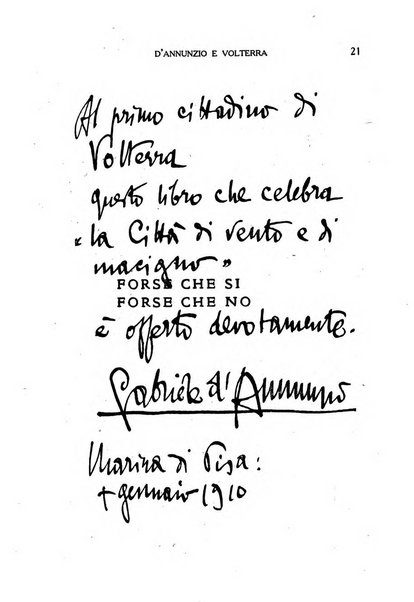 D'ANNUNZIO E VOLTERRA 21
Al primo cittadino di
Volterra
questo libro che celebra
"la Città di vento e di
macigno"
FORSE CHE SI
FORSE CHE NO
è offerto devotamente.
Gabriele d'Annunzio
Marina di Pisa:
gennaio 1910